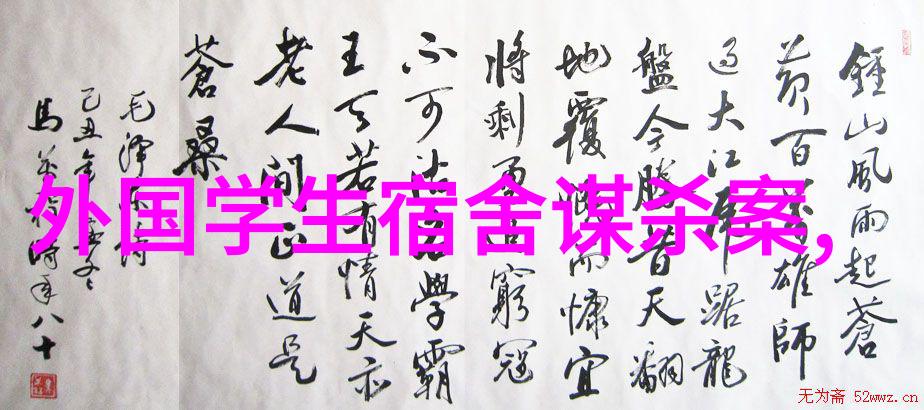 鍾山風雨起蒼
黄百萬雄師
過大江虎踞龍
盤今勝昔天翻
地覆慨而慷宜
將剩勇追窮寇
不可沽名學霸
王天若有情天亦
老人間正道是
蒼桑
毛澤東詩
己丑年孟冬
馬 時年八十
外国学生宿舍谋杀案,
无为斋 52wwz.cn